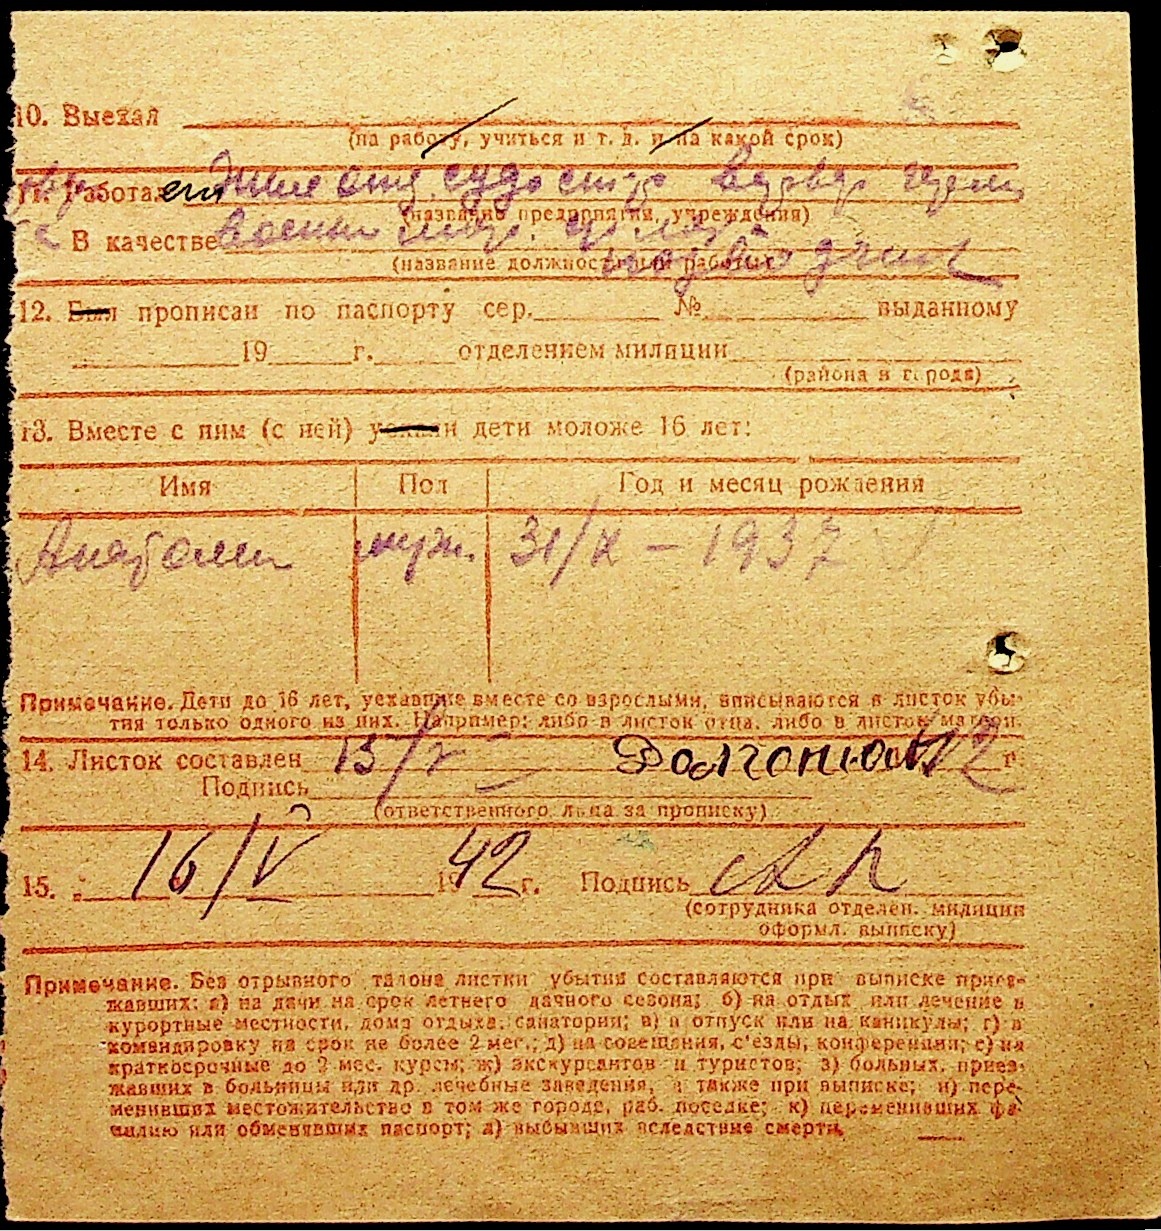 10. Выехал
(на работу, учиться и т. д. и на какой срок)
11. Работал
(название предприятия, учреждения)
В качестве
(название должности или работы)
12. Был прописан по паспорту сер. № выданному
19 г. отделением милиции
(района и города)
13. Вместе с ним (с ней) уехали дети моложе 16 лет:
Имя Пол Год и месяц рождения
Анатолий муж. 31/X – 1937
Примечание. Дети до 16 лет, уехавшие вместе со взрослыми, вписываются в листок убы-
тия только одного из них. Например: либо в листок отца, либо в листок матери.
14. Листок составлен 15/V 42 г.
Подпись
(ответственного лица за прописку)
15. „ 16/V 1942 г. Подпись
(сотрудника отделен. милиции
оформл. выписку)
Примечание. Без отрывного талона листки убытия составляются при выписке приез-
жавших: а) на дачи на срок летнего дачного сезона; б) на отдых или лечение в
курортные местности, дома отдыха, санатории; в) в отпуск или на каникулы; г) в
командировку на срок не более 2 мес.; д) на совещания, с'езды, конференции; е) на
краткосрочные до 2 мес. курсы; ж) экскурсантов и туристов; з) больных, приез-
жавших в больницы или др. лечебные заведения, а также при выписке; и) пере-
менивших местожительство в том же городе, раб. поселке; к) переменивших фа-
милию или обменявших паспорт; л) выбывших вследствие смерти.